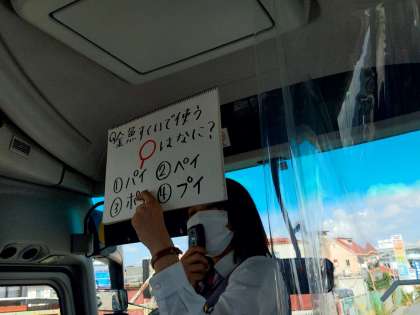 Q金魚すくいで使う
はなに?
①パイ ②ペイ
③ポ ④プイ